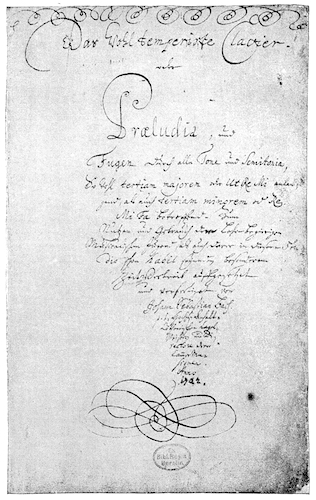 Das Wohl temperirte Clavier.
oder
Præludia, und
Fugen durch alle Tone und Semitonia,
So wohl tertiam majorem oder Ut Re Mi anlan-
gend, als auch tertiam minorem oder Re
Mi Fa betreffend. Zum
Nutzen und Gebrauch der Lehrbegierigen
Musicalischen Jugend, als auch derer in diesem stu-
dio schon habil seyenden besonderem
Zeitvertreib auffgesetzet
und verfertiget von
Johann Sebastian Bach
p. t. Hochfürstl.
Anhalt
Capel-
Meistern und
Directore derer
Cammer Mu-
siquen.
Anno
1722.